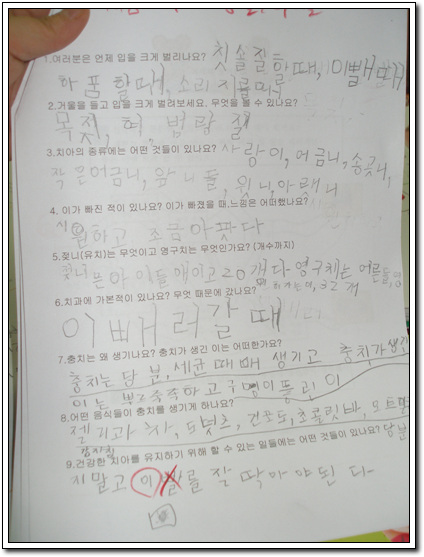 1.여러분은 언제 입을 크게 벌리나요? 칫솔질할 때, 이빨뺄때
하품할때, 소리지를때
2.거울을 들고 입을 크게 벌려보세요. 무엇을 볼 수 있나요?
목젖, 혀,
3.치아의 종류에는 어떤 것들이 있나요? 사랑이, 어금니, 송곳니,
작은어금니, 앞니들, 윗니, 아랫니
4. 이가 빠진 적이 있나요? 이가 빠졌을 때, 느낌은 어떠했나요?
시원하고 조금 아팟다
5.젖니(유치)는 무엇이고 영구치는 무엇인가요? (개수까지)
젖니는 아이들 애이고 20개다 영구치는 어른들
32개
6.치과에 가본적이 있나요? 무엇 때문에 갔나요?
이빼러갈때
7.충치는 왜 생기나요? 충치가 생긴 이는 어떠한가요?
충치는 당분, 세균 때매 생기고 충치가생긴
이는 구멍이뜰린이
8.어떤 음식들이 충치를 생기게 하나요?
젤리과, 도넛츠, 건포도, 초콜릿바,
감자칩
9.건강한 치아를 유지하기 위해 할 수 있는 일들에는 어떤 것들이 있나요? 당분
지말고 이빨를 잘 딱아야된다